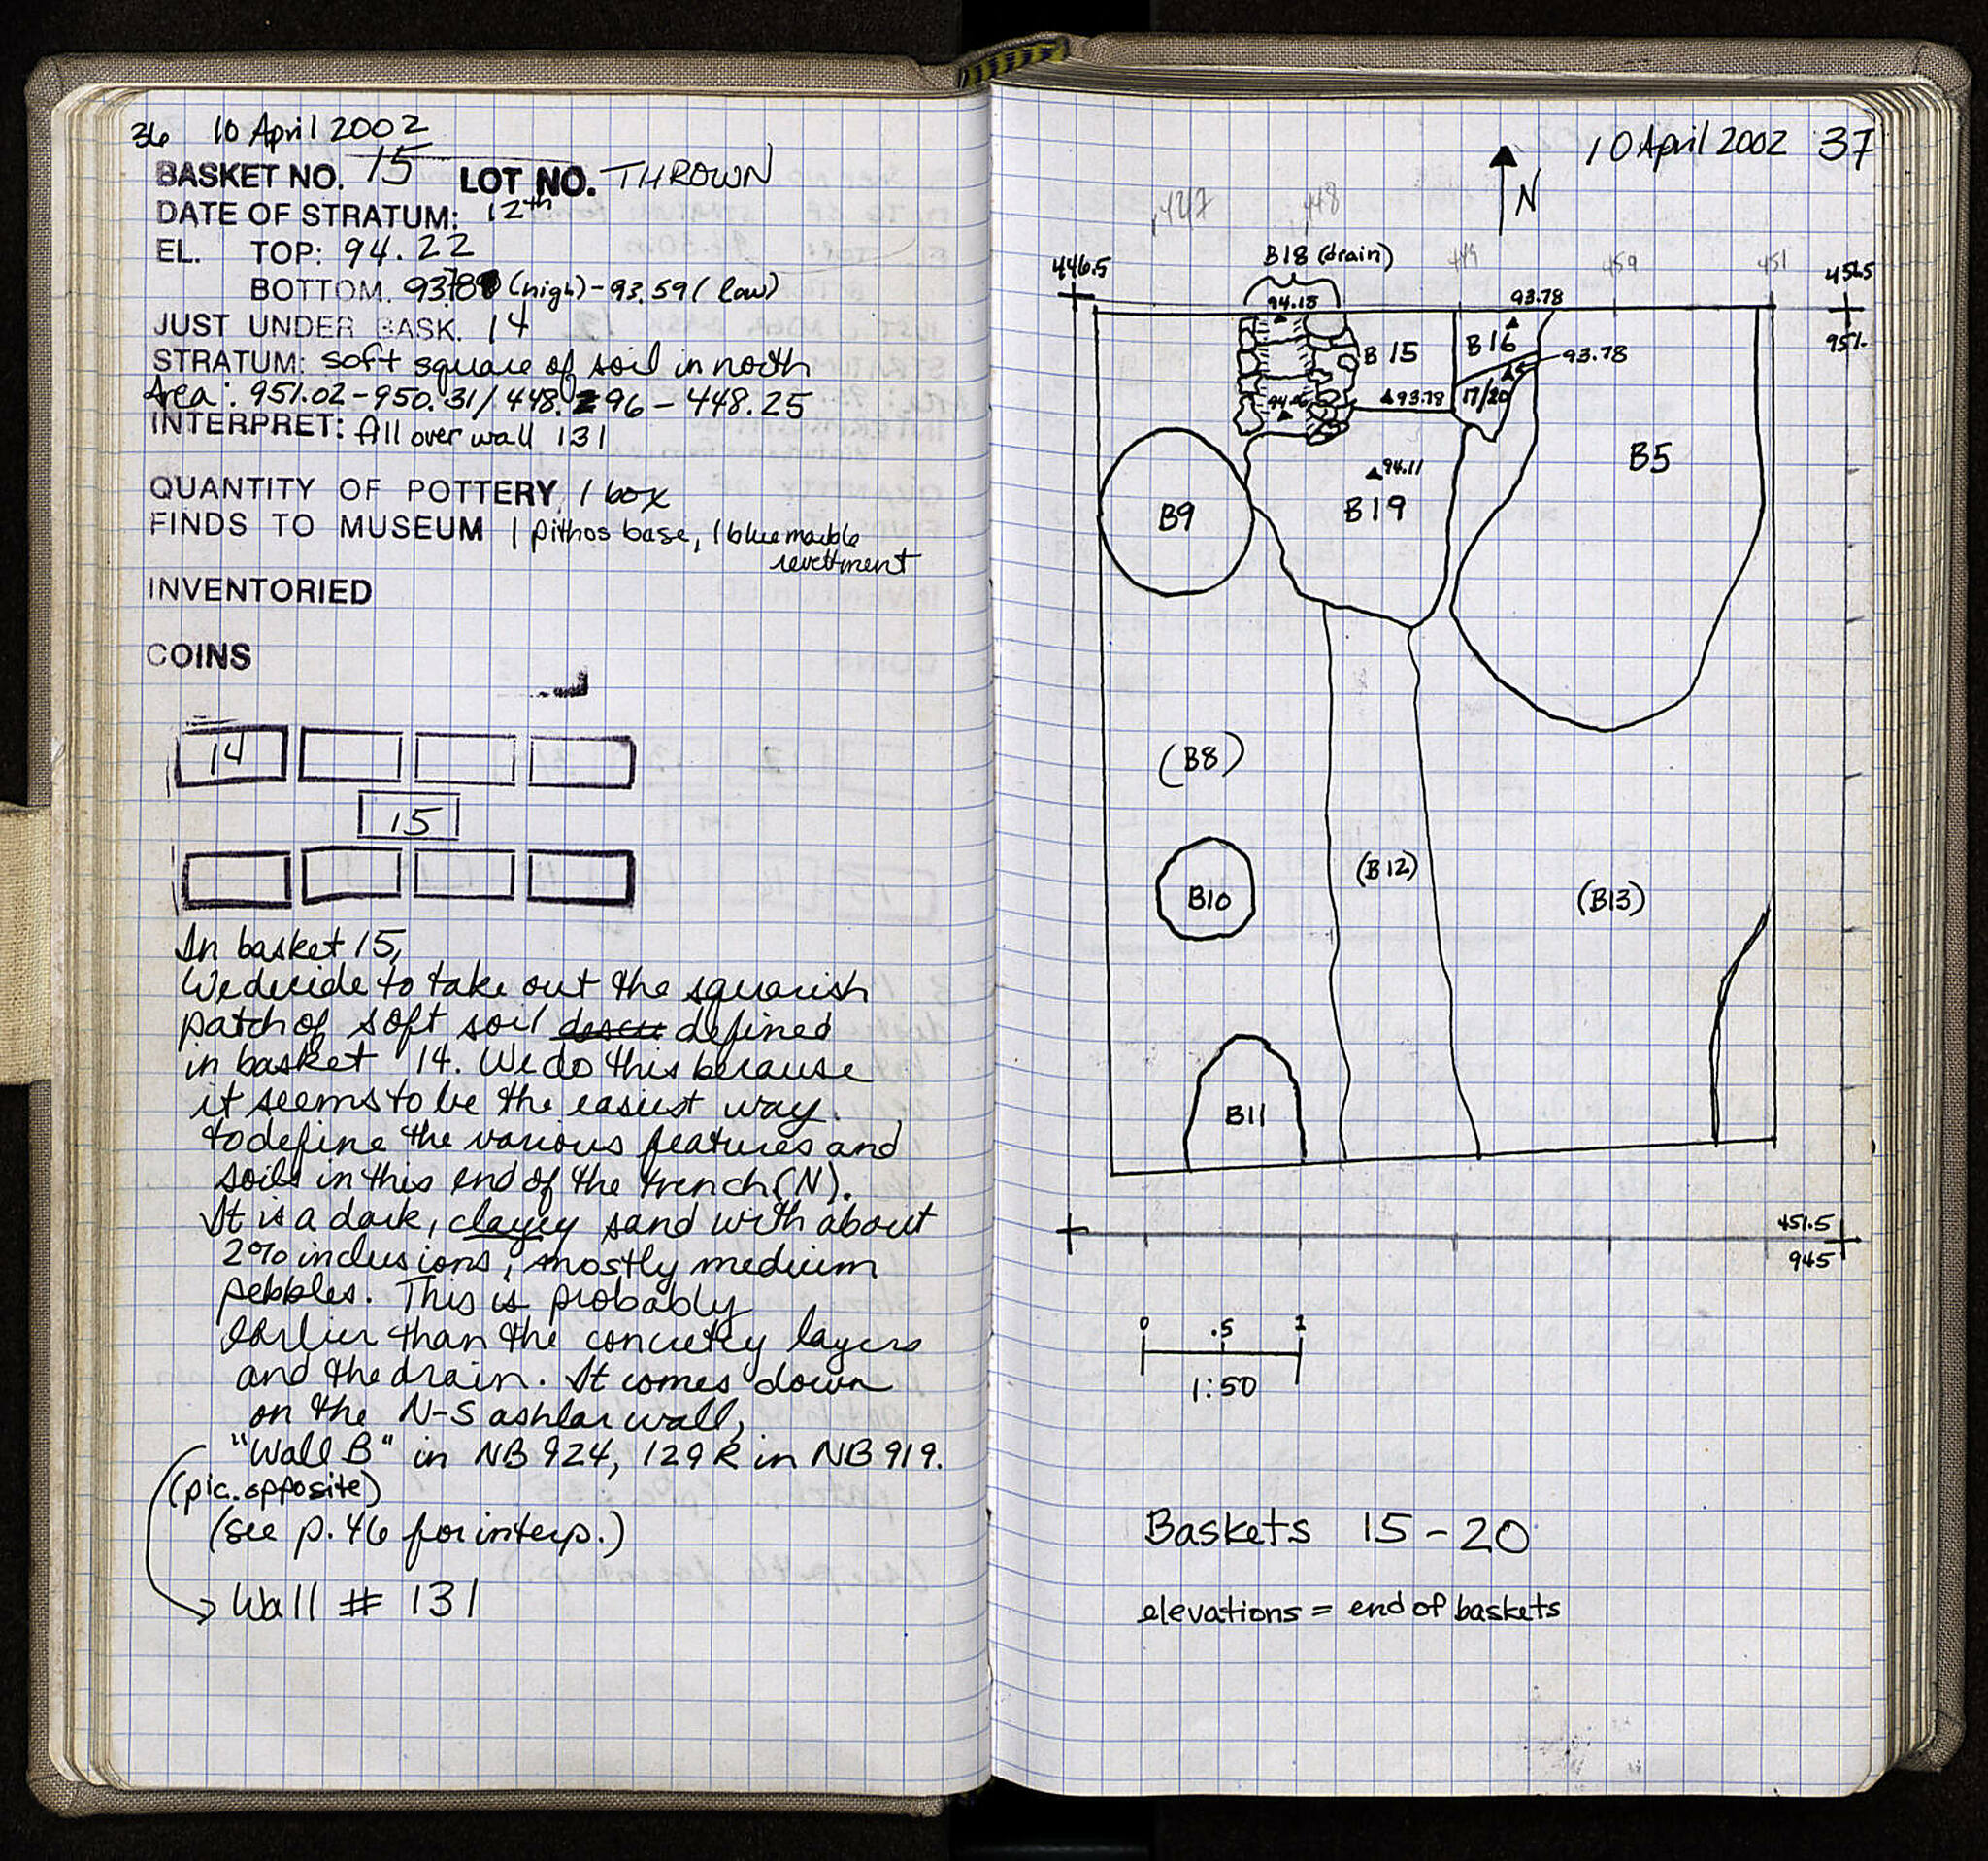 36 10 April 2002
BASKET NO. 15 LOT NO. THROWN
DATE OF STRATUM: 12th
EL. TOP: 94.22
BOTTOM. 93.78 (high) - 93.59 (low)
JUST UNDER BASK. 14
STRATUM: soft square of soil in north
Area: 951.02-950.31/448.96-448.25
INTERPRET: fill over wall 131
QUANTITY OF POTTERY 1 box
FINDS TO MUSEUM 1 pithos base, 1 blue marble
revettment
INVENTORIED
COINS
14
15
In basket 15,
We decide to take out the squarish
patch of soft soil defined
in basket 14. We do this because
it seems to be the easiest way
to define the various features and
soils in this end of the trench (N).
It is a dark, clayey sand with about
2% inclusions, mostly medium
pebbles. This is probably
earlier than the concretey layers
and the drain. It comes down
on the N-S ashlar wall,
"Wall B" in NB 924, 129 R in NB 919.
(pic. opposite)
(see p. 46 for interp.)
Wall # 131
10 April 2002 37
N
447 448
B18 (drain)
446.5 449 459 451 451.5
94.18 93.78
951.
B15 B16 93.78
93.78 17/20
94.11
B5
B9 B19
(B8)
(B12)
B10 (B13)
B11
451.5
945
0 .5 1
1:50
Baskets 15-20
elevations = end of baskets